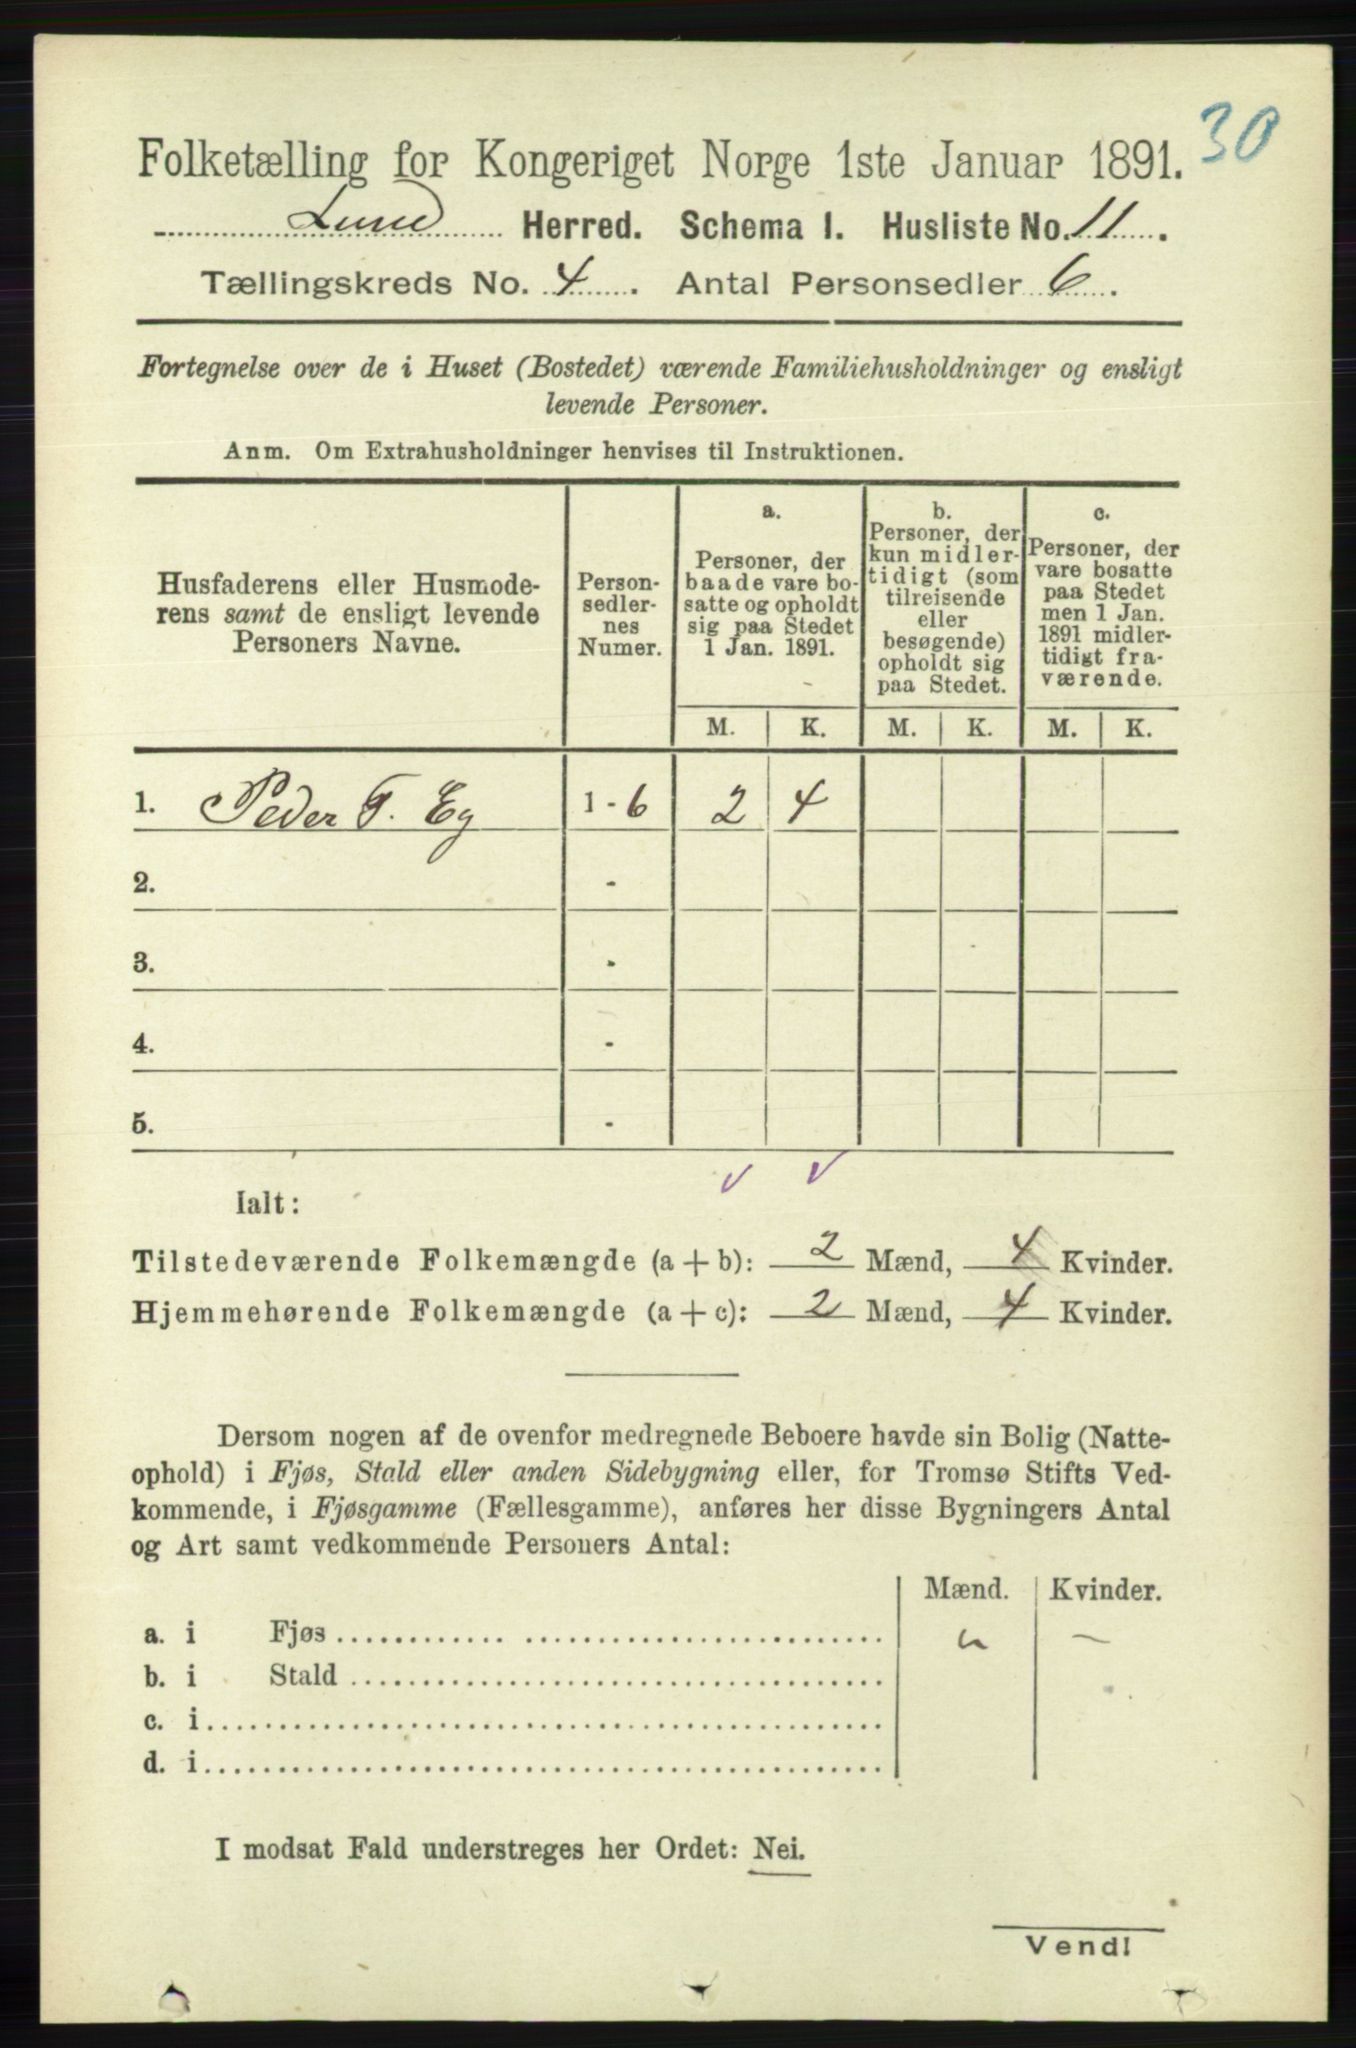 30
Folketælling for Kongeriget Norge 1ste Januar 1891.
Lund Herred. Schema I. Husliste No. 11.
Tællingskreds No. 4. Antal Personsedler 6.
Fortegnelse over de i Huset (Bostedet) værende Familiehusholdninger og ensligt
levende Personer.
Anm. Om Extrahusholdninger henvises til Instruktionen.
Husfaderens eller Husmode-
rens samt de ensligt levende
Personers Navne.
Person-
sedler-
nes
Numer.
a.
Personer, der
baade vare bo-
satte og opholdt
sig paa Stedet
1 Jan. 1891.
b.
Personer, der
kun midler-
tidigt (som
tilreisende
eller
besøgende)
opholdt sig
paa Stedet.
c.
Personer, der
vare bosatte
paa Stedet
men 1 Jan.
1891 midler-
tidigt fra-
værende.
M. K. M. K. M. K.
1. Peder T. Eg 1 - 6 2 4
2. -
3. -
4. -
5. -
Ialt:
Tilstedeværende Folkemængde (a + b): 2 Mænd, 4 Kvinder.
Hjemmehørende Folkemængde (a + c): 2 Mænd, 4 Kvinder.
Dersom nogen af de ovenfor medregnede Beboere havde sin Bolig (Natte-
ophold) i Fjøs, Stald eller anden Sidebygning eller, for Tromsø Stifts Ved-
kommende, i Fjøsgamme (Fællesgamme), anføres her disse Bygningers Antal
og Art samt vedkommende Personers Antal:
Mænd. Kvinder.
a. i Fjøs
b. i Stald
c. i
d. i
I modsat Fald understreges her Ordet: Nei.
Vend!